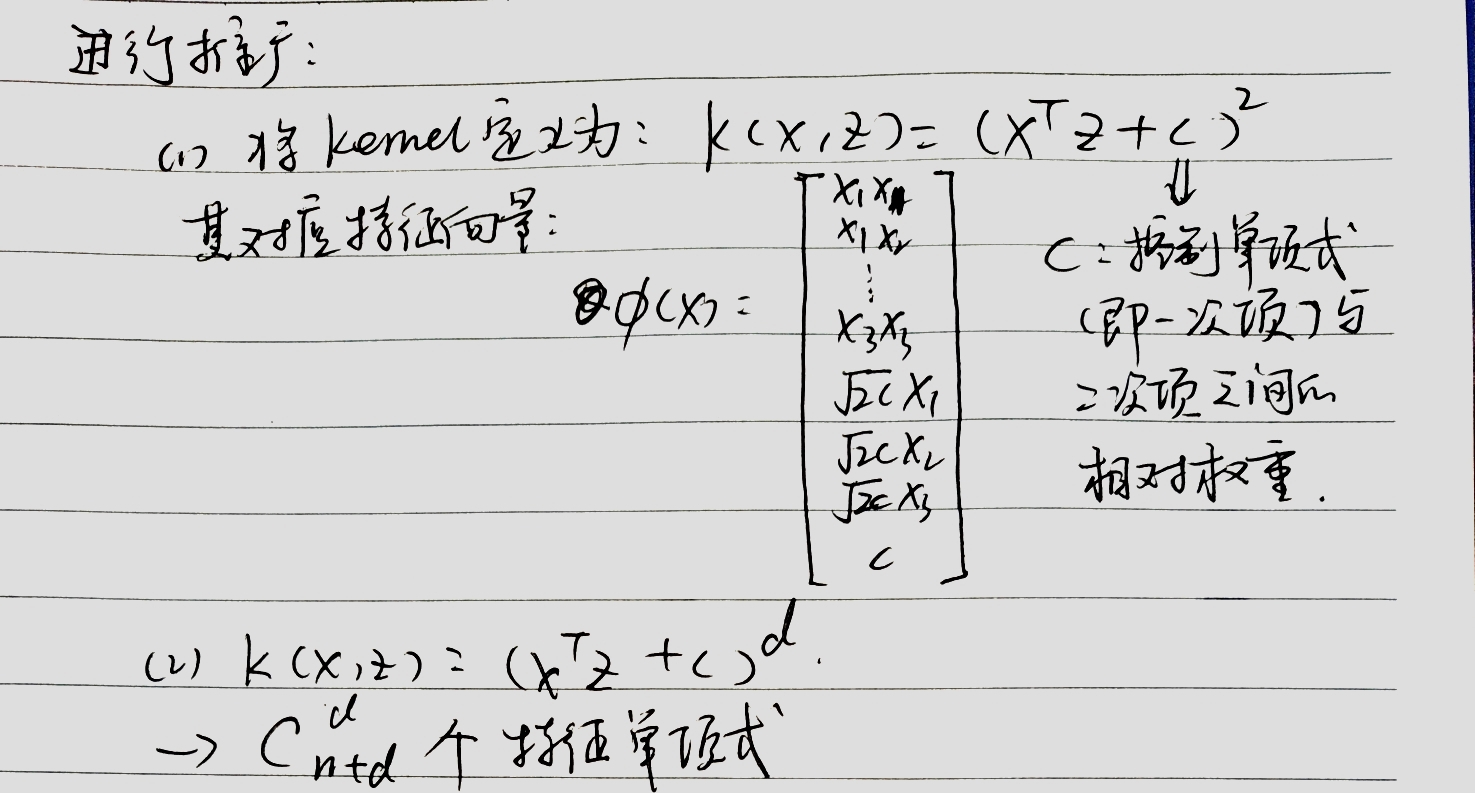 进行推广:
(1) 将 kernel 定义为: K(x,z)= (x^T z + c)^2
其对应特征向量:
φ(x) =
x₁x₁
x₁x₂
⋮
x₃x₃
√2c x₁
√2c x₂
√2c x₃
c
⇓
c:控制单项式
(即一次项)与
二次项之间的
相对权重.
(2) K(x,z) = (x^T z + c)^d.
→ C_{n+d}^d 个 特征单项式